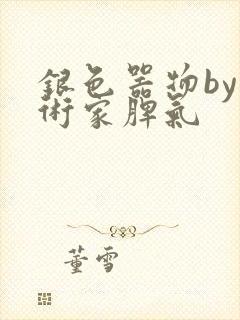 銀色器物by
術家脾氣
董雪